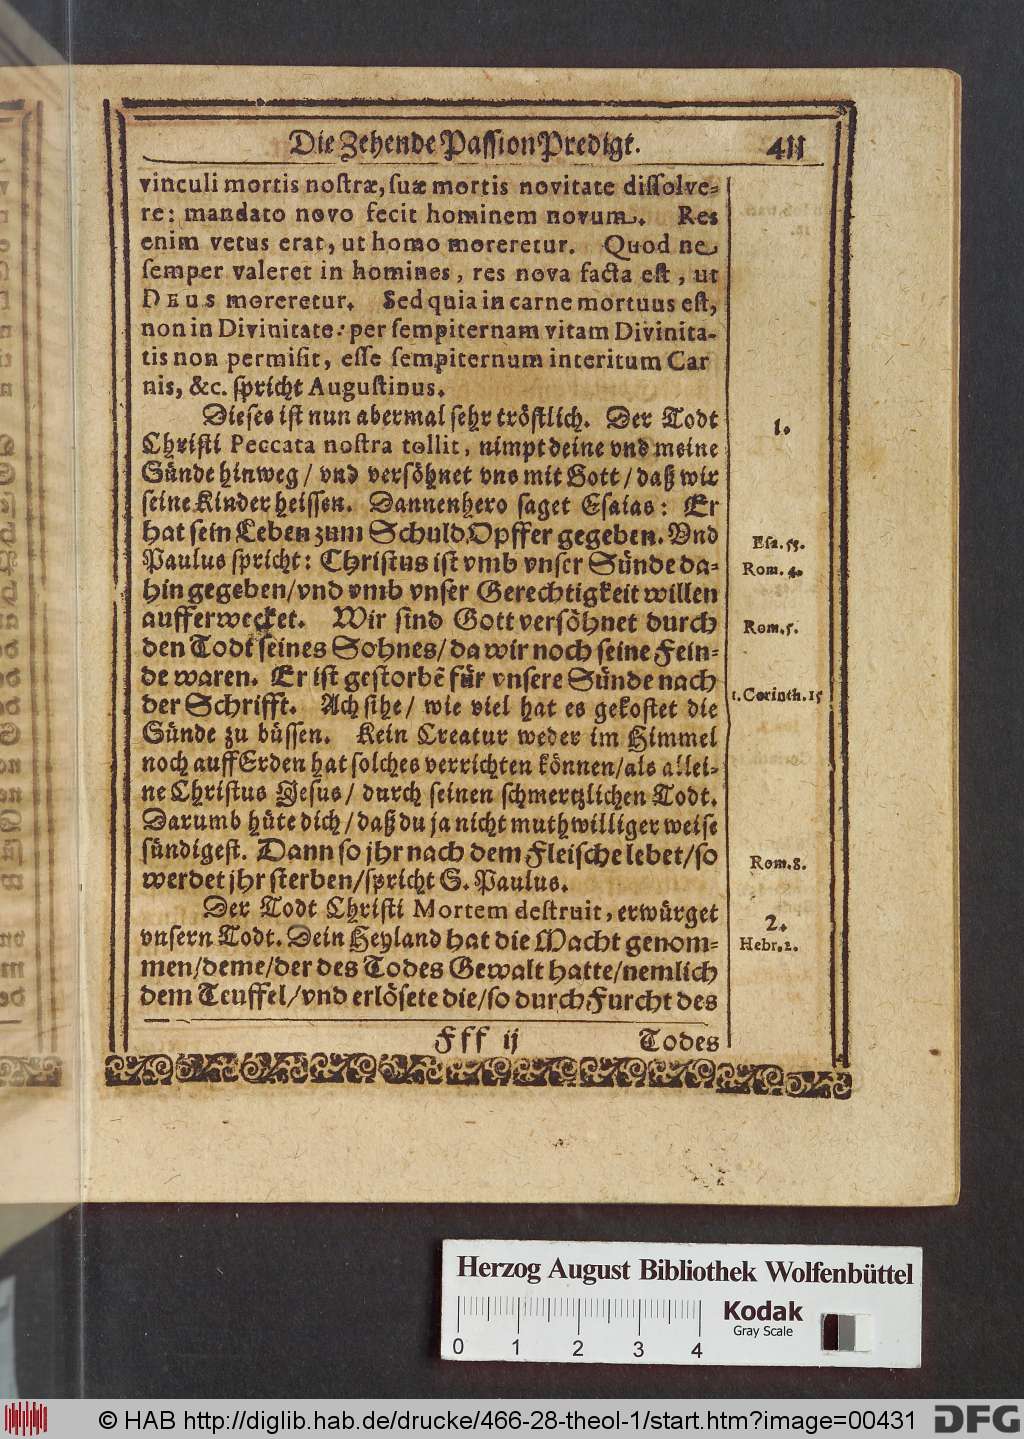 Die Zehende Passion Predigt. 411
vinculi mortis nostræ, suæ mortis novitate dissolve-
re: mandato novo fecit hominem novum. Res
enim vetus erat, ut homo moreretur. Quod ne
semper valeret in homines, res nova facta est, ut
DEUS moreretur. Sed quia in carne mortuus est,
non in Divinitate: per sempiternam vitam Divinita-
tis non permisit, esse sempiternum interitum Car
nis, &c. spricht Augustinus.
Dieses ist nun abermal sehr tröstlich. Der Todt
1.
Christi Peccata nostra tollit, nimpt deine vnd meine
Sünde hinweg / vnd versöhnet vns mit Gott / daß wir
seine Kinder heissen. Dannenhero saget Esaias: Er
hat sein Leben zum SchuldOpffer gegeben. Vnd
Esa. 53.
Paulus spricht: Christus ist vmb vnser Sünde da-
Rom. 4.
hin gegeben/vnd vmb vnser Gerechtigkeit willen
aufferwecket. Wir sind Gott versöhnet durch
Rom. 5.
den Todt seines Sohnes/ da wir noch seine Fein-
de waren. Er ist gestorbẽ für vnsere Sünde nach
der Schrifft. Ach sihe/ wie viel hat es gekostet die
1. Corinth. 15
Sünde zu büssen. Kein Creatur weder im Himmel
noch auff Erden hat solches verrichten können/als allei-
ne Christus Jesus/ durch seinen schmertzlichen Todt.
Darumb hüte dich/ daß du ja nicht muthwilliger weise
sündigest. Dann so jhr nach dem Fleische lebet/so
Rom. 8.
werdet jhr sterben/spricht S. Paulus.
Der Todt Christi Mortem destruit, erwürget
2.
vnsern Todt. Dein Heyland hat die Macht genom-
Hebr. 2.
men/deme/der des Todes Gewalt hatte/nemlich
dem Teuffel/vnd erlösete die/so durch Furcht des
Fff ij Todes
Herzog August Bibliothek Wolfenbüttel
Kodak
Gray Scale
0 1 2 3 4
© HAB http://diglib.hab.de/drucke/466-28-theol-1/start.htm?image=00431
DFG